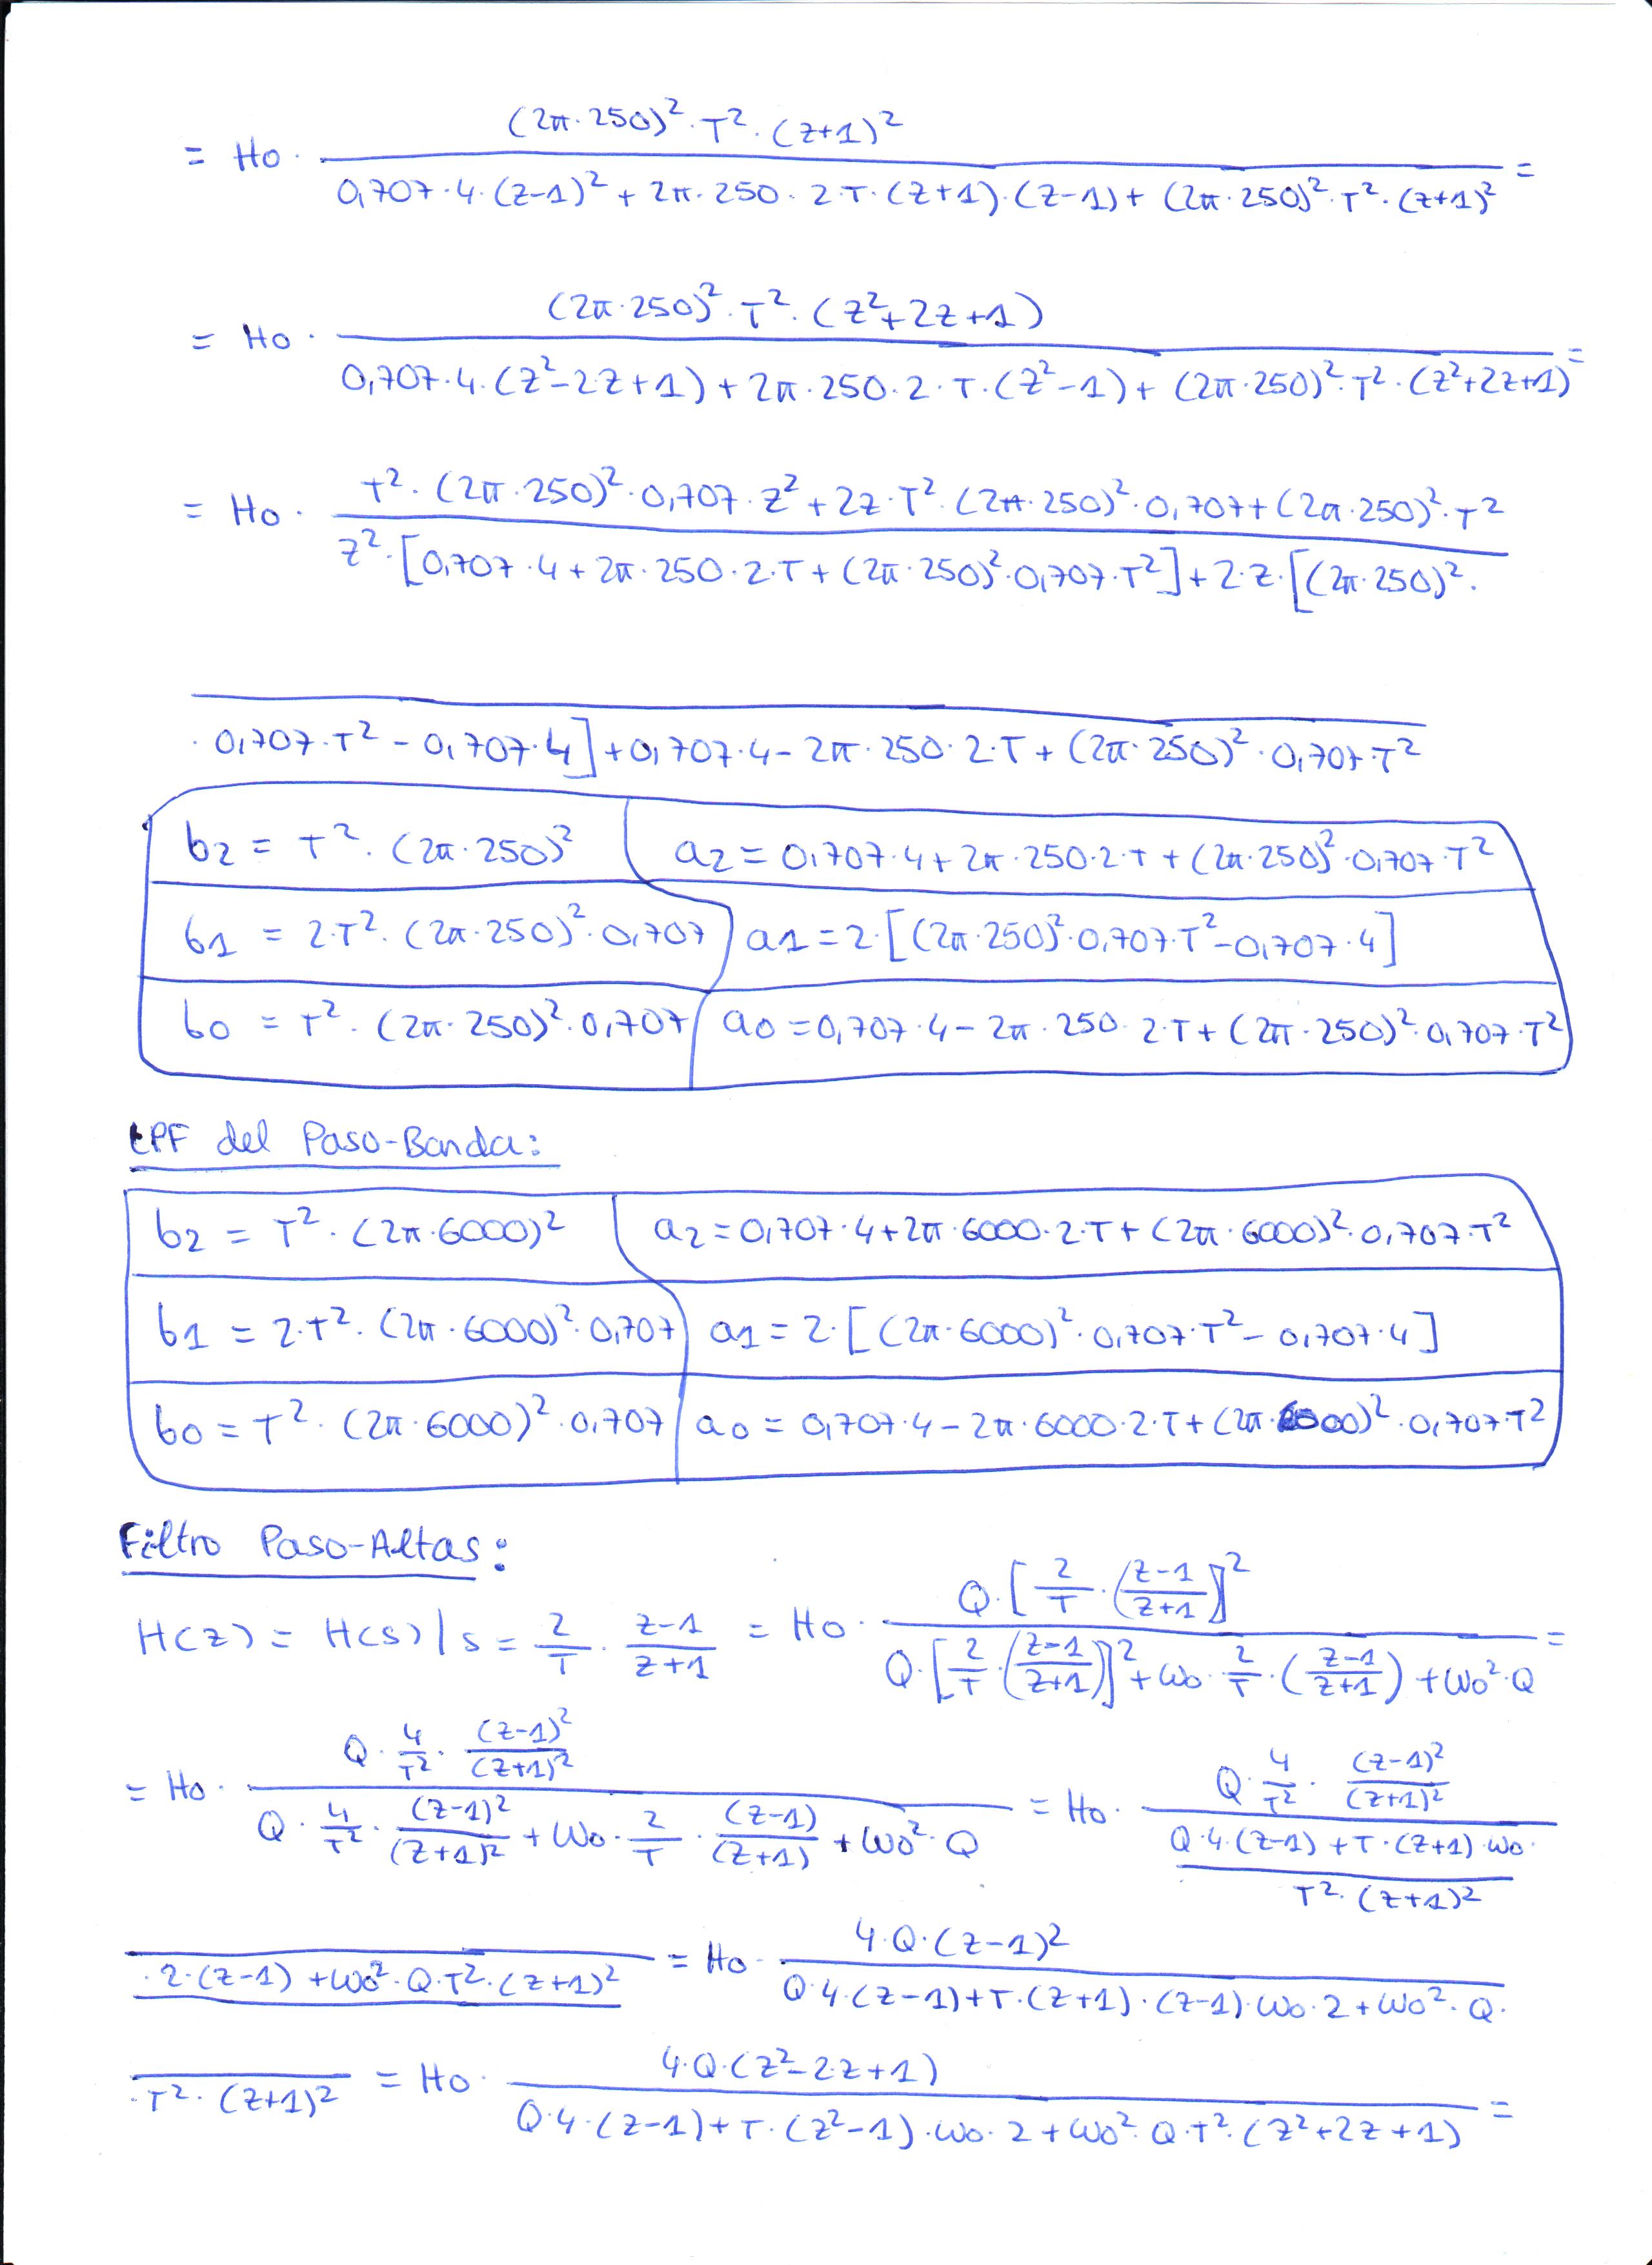 = Ho · \frac{(2π·250)²·T²·(z+1)²}{0,707·4·(z-1)² + 2π·250·2·T·(z+1)·(z-1) + (2π·250)²·T²·(z+1)²} =
= Ho · \frac{(2π·250)²·T²·(z²+2z+1)}{0,707·4·(z²-2z+1) + 2π·250·2·T·(z²-1) + (2π·250)²·T²·(z²+2z+1)} =
= Ho · \frac{T²·(2π·250)²·0,707·z² + 2z·T²·(2π·250)²·0,707 + (2π·250)²·T²}{z²·[0,707·4 + 2π·250·2·T + (2π·250)²·0,707·T²] + 2·z·[(2π·250)²·}
·0,707·T² - 0,707·4] + 0,707·4 - 2π·250·2·T + (2π·250)²·0,707·T²
b2 = T²·(2π·250)² a2 = 0,707·4 + 2π·250·2·T + (2π·250)²·0,707·T²
b1 = 2·T²·(2π·250)²·0,707 a1 = 2·[(2π·250)²·0,707·T² - 0,707·4]
b0 = T²·(2π·250)²·0,707 a0 = 0,707·4 - 2π·250·2·T + (2π·250)²·0,707·T²
LPF del Paso-Banda:
b2 = T²·(2π·6000)² a2 = 0,707·4 + 2π·6000·2·T + (2π·6000)²·0,707·T²
b1 = 2·T²·(2π·6000)²·0,707 a1 = 2·[(2π·6000)²·0,707·T² - 0,707·4]
b0 = T²·(2π·6000)²·0,707 a0 = 0,707·4 - 2π·6000·2·T + (2π·6000)²·0,707·T²
Filtro Paso-Altas:
H(z) = H(s) | s = \frac{2}{T} · \frac{z-1}{z+1} = Ho · \frac{Q·[\frac{2}{T}·(\frac{z-1}{z+1})]²}{Q·[\frac{2}{T}·(\frac{z-1}{z+1})]² + ωo·\frac{2}{T}·(\frac{z-1}{z+1}) + ωo²·Q} =
= Ho · \frac{Q·\frac{4}{T²}·\frac{(z-1)²}{(z+1)²}}{Q·\frac{4}{T²}·\frac{(z-1)²}{(z+1)²} + ωo·\frac{2}{T}·\frac{(z-1)}{(z+1)} + ωo²·Q} = Ho · \frac{Q·\frac{4}{T²}·\frac{(z-1)²}{(z+1)²}}{\frac{Q·4·(z-1) + T·(z+1)·ωo·}{T²·(z+1)²}}
·2·(z-1) + ωo²·Q·T²·(z+1)² = Ho · \frac{4·Q·(z-1)²}{Q·4·(z-1) + T·(z+1)·(z-1)·ωo·2 + ωo²·Q·}
·T²·(z+1)² = Ho · \frac{4·Q·(z²-2·z+1)}{Q·4·(z-1) + T·(z²-1)·ωo·2 + ωo²·Q·T²·(z²+2z+1)} =